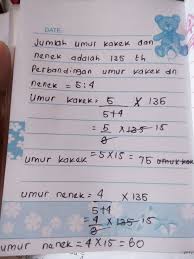 DATE:
Jumlah umur kakek dan
nenek adalah 135 th
Perbandingan umur kakek dn
nenek = 5:4
Umur kakek = 5/5+4 × 135
= 5/9 × 135 15
umur kakek = 5 × 15 = 75
umur nenek = 4/5+4 × 135
= 4/9 × 135 15
umur nenek = 4 × 15 = 60